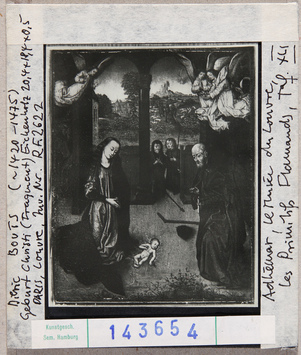 Dieric BOUTS (~1420-1475)
Geburt Christi (Fragment) Eichenholz 20,4x19,4x0,5
Paris, Louvre, Inv. Nr. RF 2622
Adhémar, Le Musée du Louvre
Les Primitifs Flamands, Taf. XLI
Kunstgesch.
Sem. Hamburg
143654